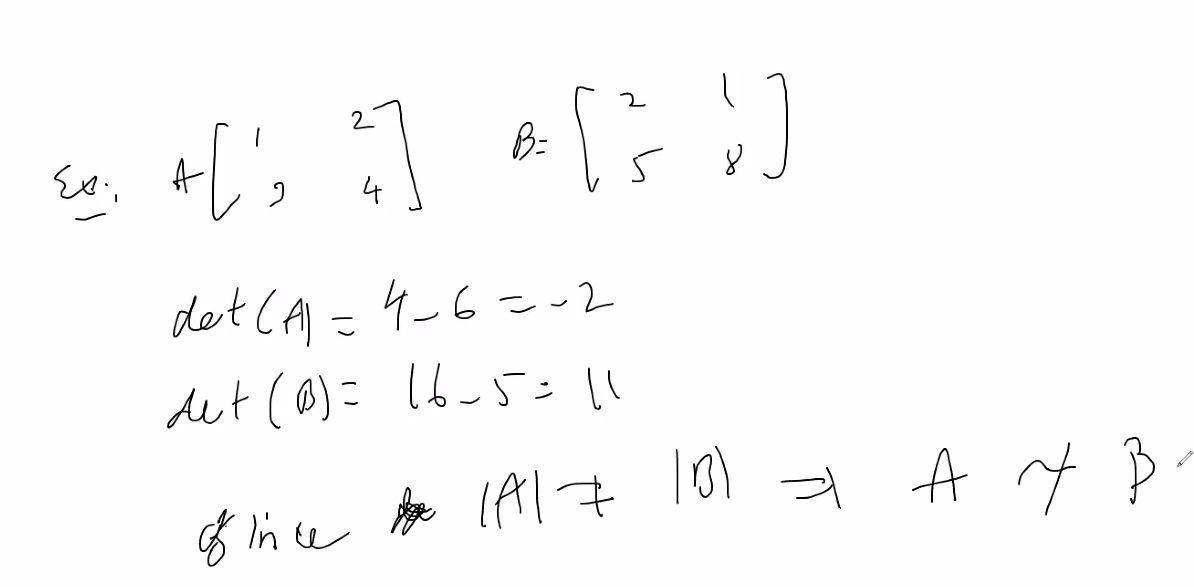 Ex: A [ 1 2 ] B= [ 2 1 ]
[ 3 4 ] [ 5 8 ]
det(A) = 4-6 = -2
det(B) = 16-5 = 11
Since |A| ≠ |B| ⇒ A ≁ B